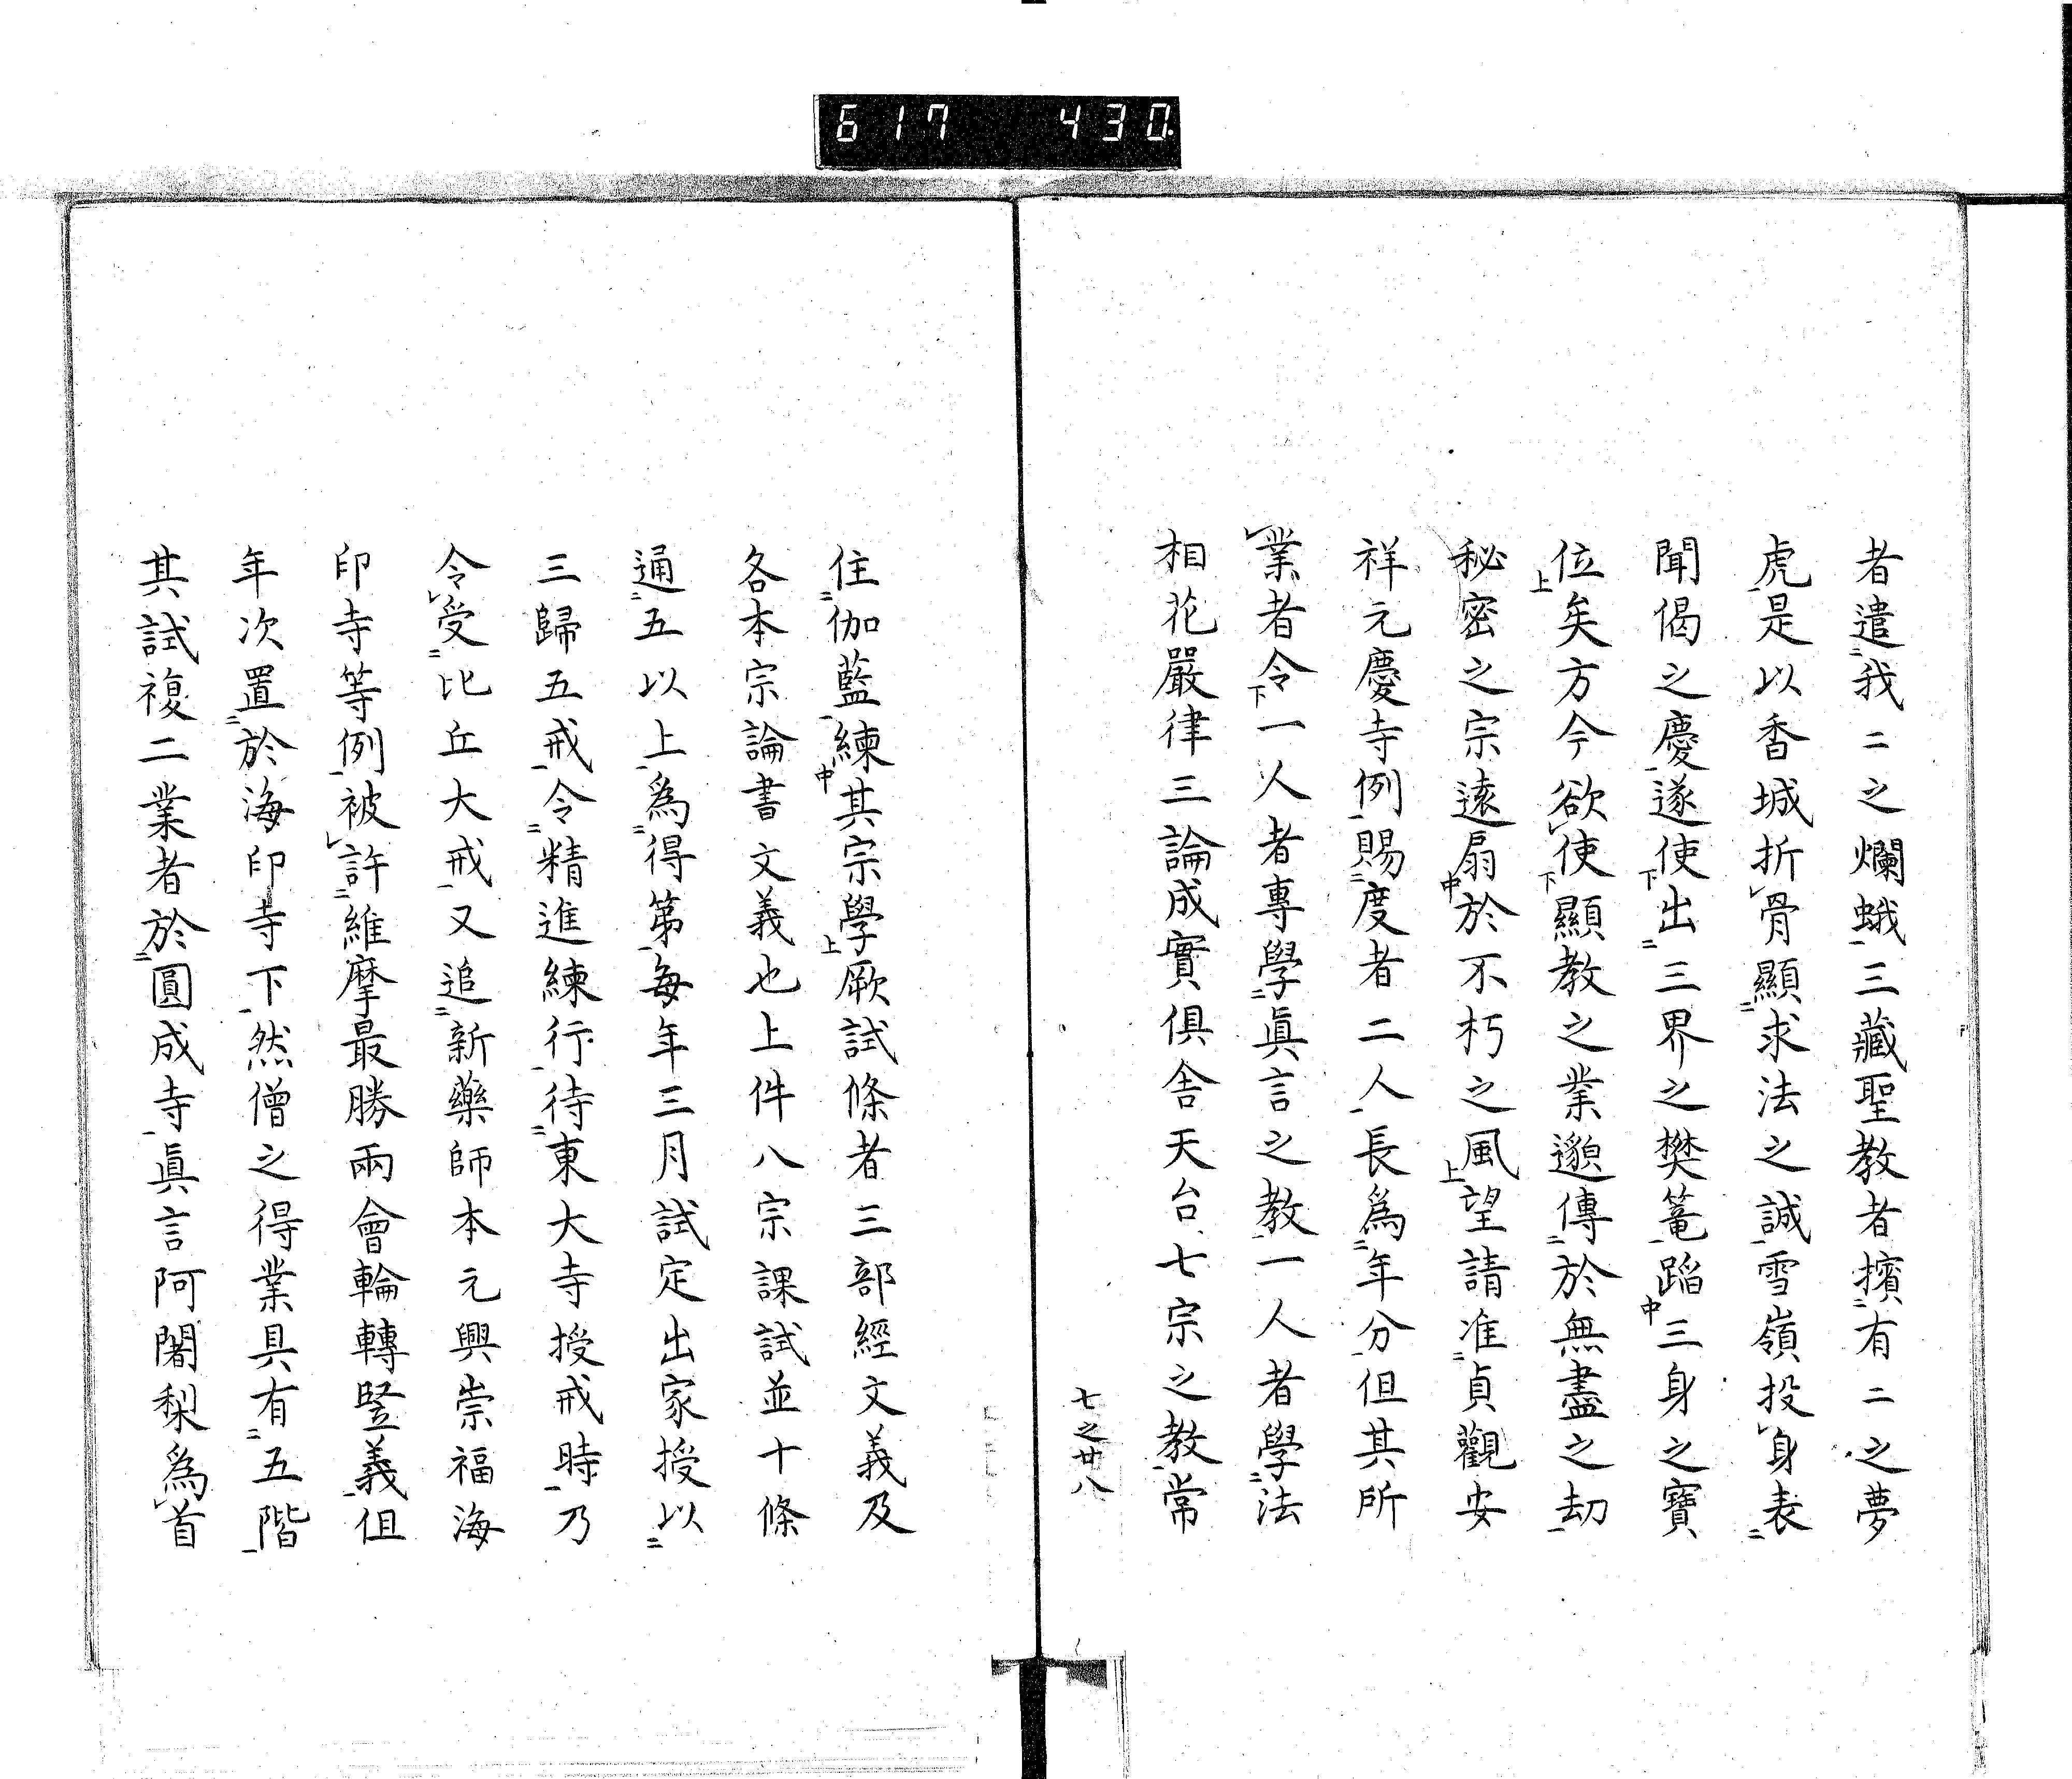 617 430
者遣我二之爛蛾三藏聖教者擯有二之夢
虎是以香城折骨顯求法之誠雪嶺投身表
聞偈之慶遂使出三界之樊篭蹈三身之寶
位矣方今欲使顯教之業邈傳於無盡之劫
秘密之宗遠扇於不朽之風望請准貞觀安
祥元慶寺例賜度者二人長爲年分但其所
業者令一人者專學眞言之教一人者學法
相花嚴律三論成實俱舎天台七宗之教常
七之廿八
住伽藍練其宗學厥試條者三部經文義及
各本宗論書文義也上件八宗課試並十條
通五以上爲得第每年三月試定出家授以
三歸五戒令精進練行待東大寺授戒時乃
令受比丘大戒又追新藥師本元興崇福海
印寺等例被許維摩最勝兩會輪轉竪義但
年次置於海印寺下然僧之得業具有五階
其試複二業者於圓成寺眞言阿闍梨爲首